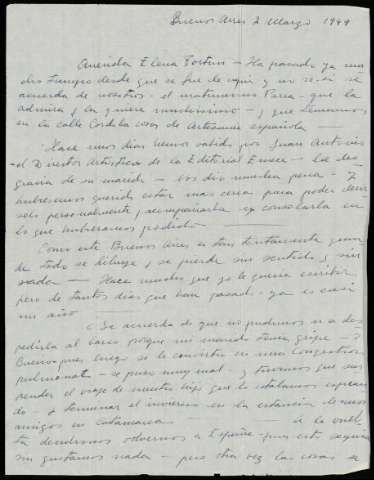 Buenos Aires 2 Marzo 1949
Querida Elena Fortún — Ha pasado ya mu-
cho tiempo desde que se fue de aquí y no se si se
acuerda de nosotros - el matrimonio Parra - que la
admira y la quiere muchísimo - y que teníamos
en la calle Córdoba cosas de Artesanía española —
Hace unos días hemos sabido por Juan Antonio
el Director Artístico de la Editorial Emecé - la des-
gracia de su marido - nos dio mucha pena - y
hubiéramos querido estar mas cerca para poder
personalmente, acompañarla y consolarla en
lo que hubiéramos podido
Como este Buenos Aires es tan
todo se diluye y se pierde sin sentido y sin
nada — Hace mucho que yo le quería escribir
pero de tantos días que han pasado - ya es casi
un año
¿Se acuerda de que no pudimos ir a des-
pedirla al barco porque mi marido tenía gripe - ?
Bueno pues luego se le convirtió en una congestión
pulmonar - se puso muy mal - y tuvimos que sus-
pender el viaje de nuestra hija que la estábamos esperan-
do - y terminar el invierno en la estancia de unos
amigos en Catamarca — a la vuel-
ta decidimos volvernos a España - pues esto seguía
sin gustarnos nada - pero otra vez las cosas se